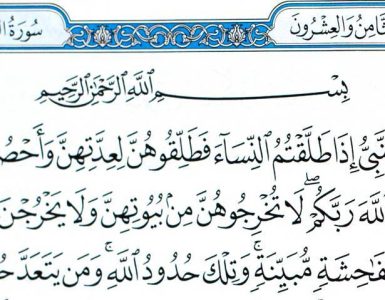 ثَامِنُ وَالعِشْرُونَ سُورَةُ
بِسْمِ ٱللَّهِ ٱلرَّحْمَٰنِ ٱلرَّحِيمِ
نَّبِىُّ إِذَا طَلَّقْتُمُ ٱلنِّسَآءَ فَطَلِّقُوهُنَّ لِعِدَّتِهِنَّ وَأَحْصُ
ٱللَّهَ رَبَّكُمْۖ لَا تُخْرِجُوهُنَّ مِنۢ بُيُوتِهِنَّ وَلَا يَخْرُجْنَ
بِفَٰحِشَةٍ مُّبَيِّنَةٍۚ وَتِلْكَ حُدُودُ ٱللَّهِۚ وَمَن يَتَعَدَّ حُ